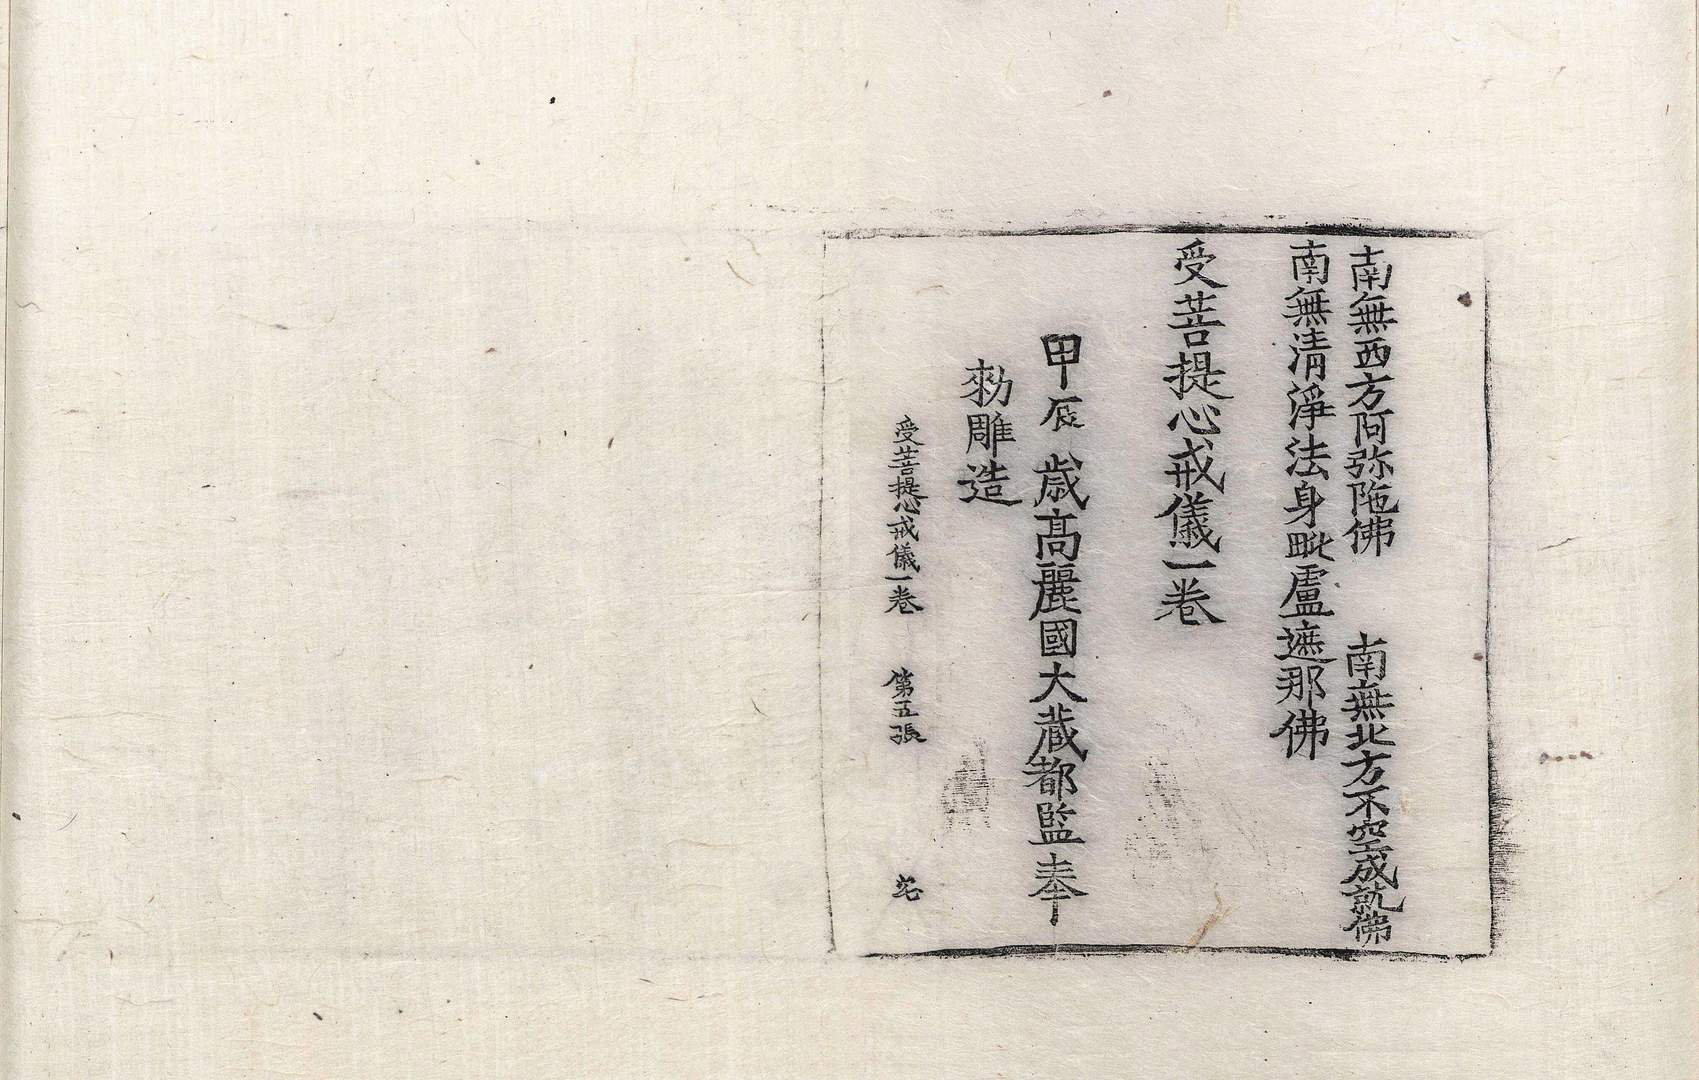 南無西方阿弥陁佛　南無北方不空成就佛
南無清淨法身毗盧遮那佛
受菩提心戒儀一卷
甲辰歳髙麗國大藏都監奉
勑雕造
受菩提心戒儀一卷　第五張